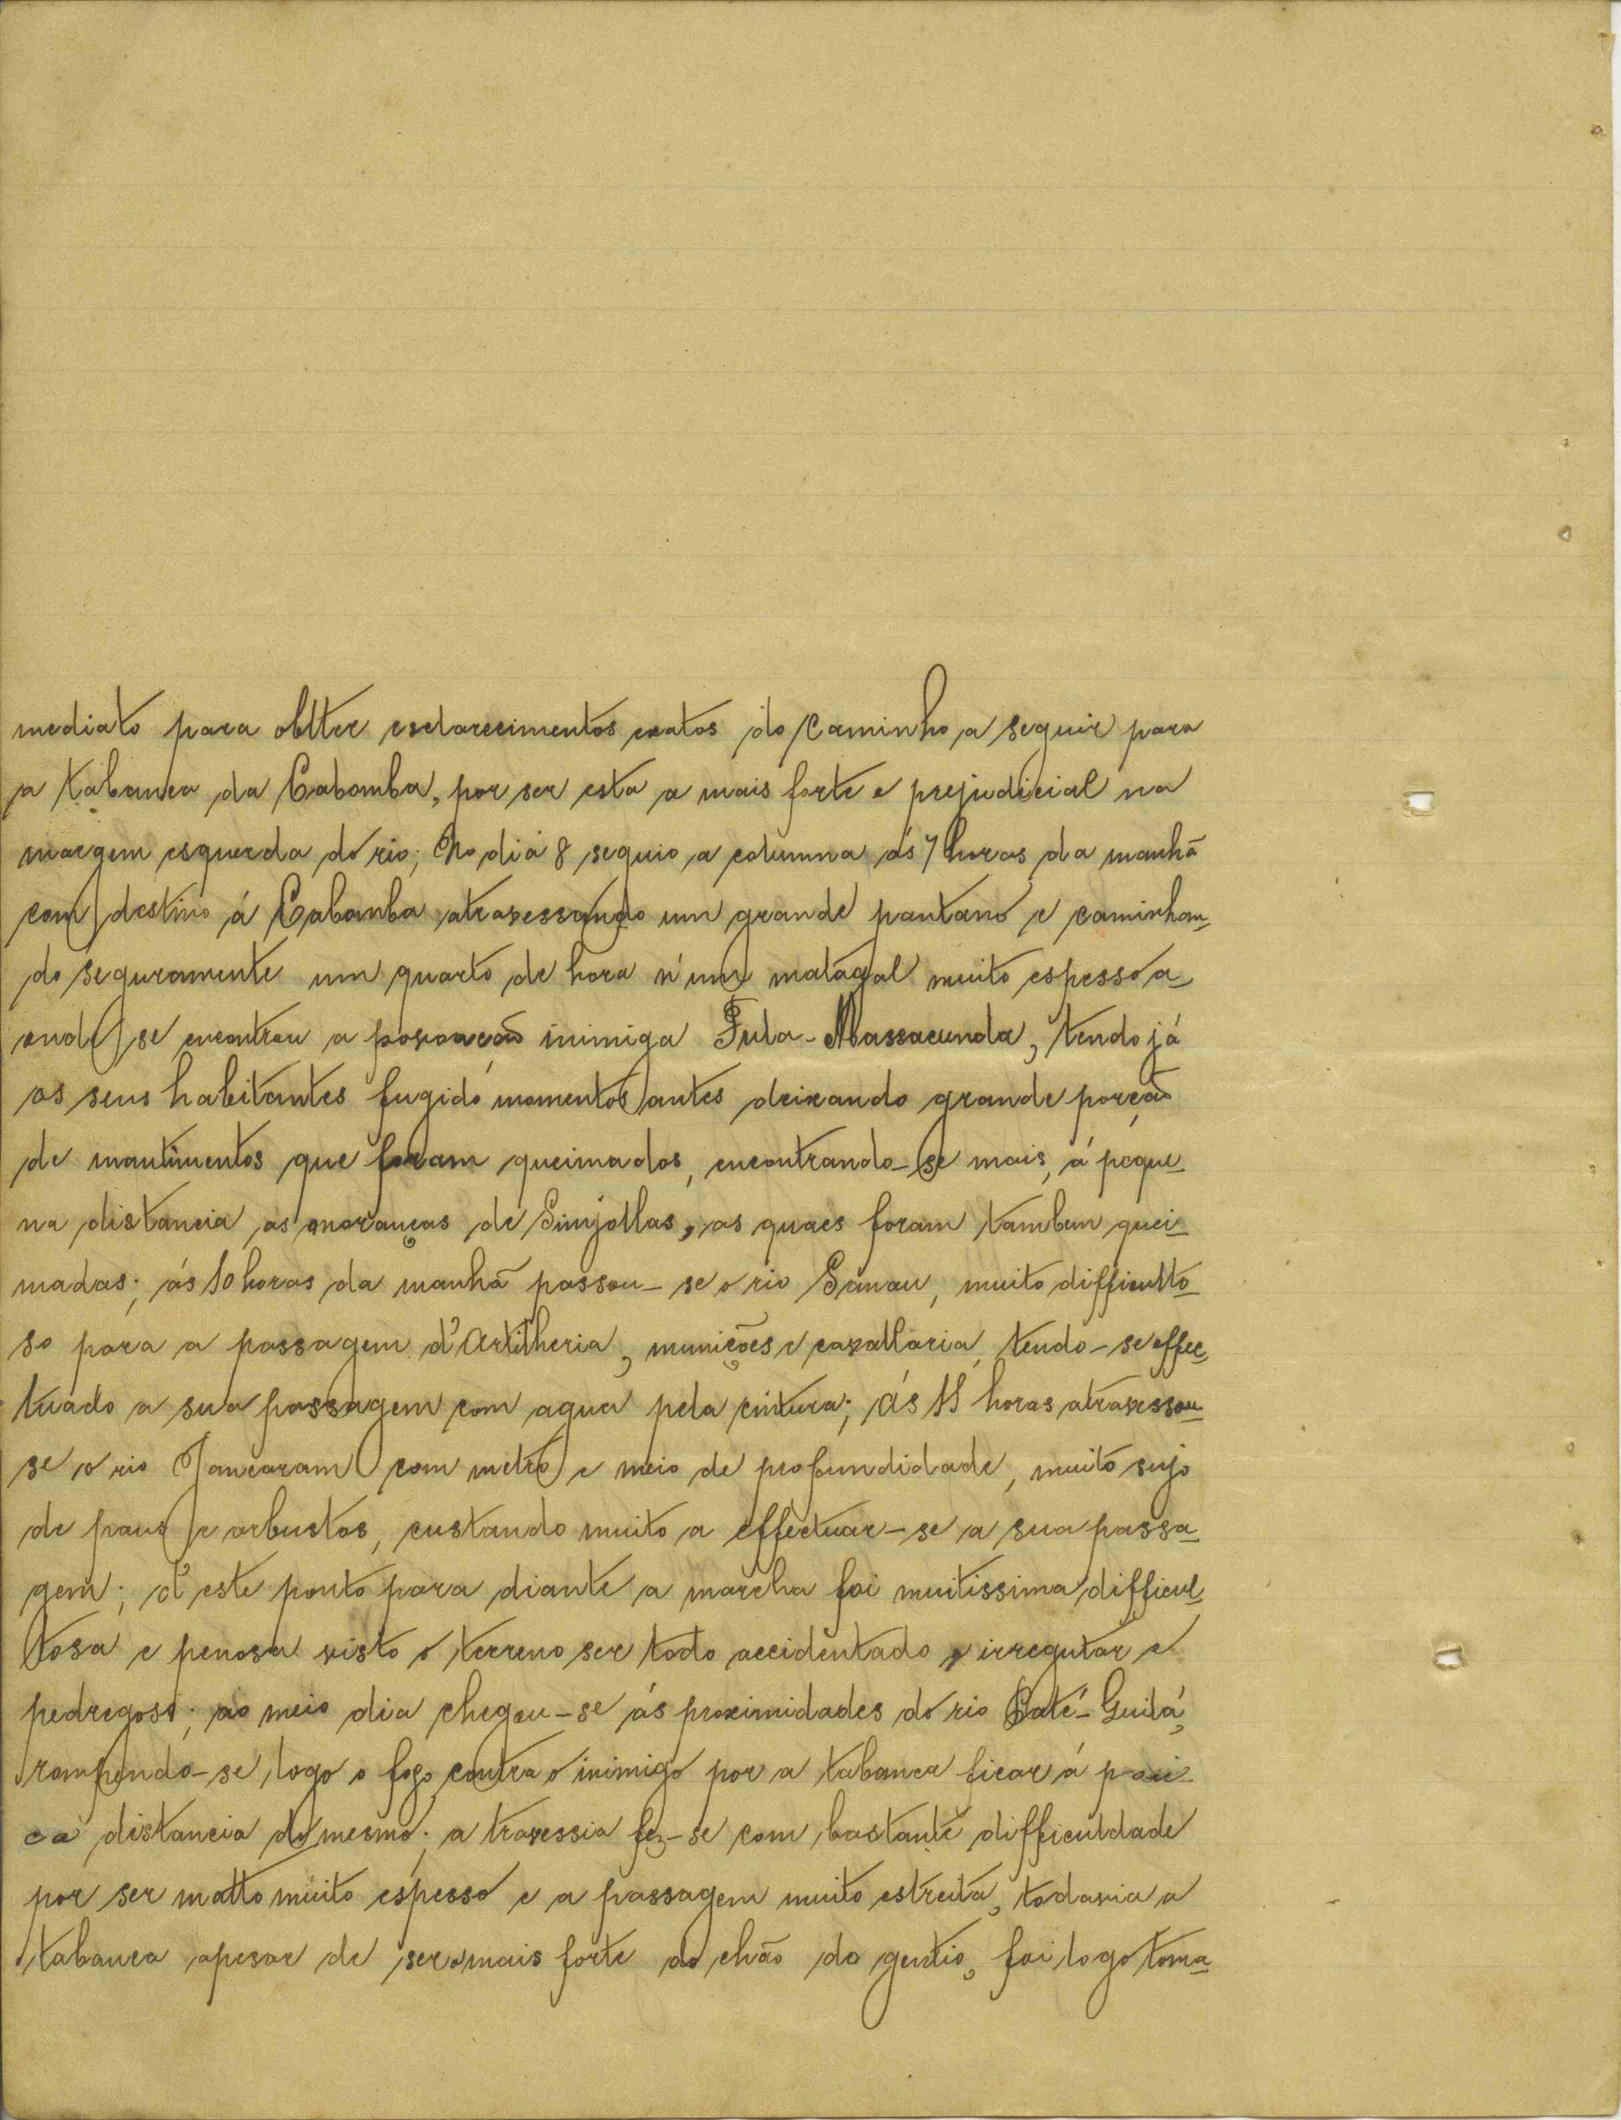 mediato para obtter esclarecimentos exatos do caminho a seguir para
a tabanca da Cabomba, por ser esta a mais forte e prejudicial na
margem esquerda do rio; No dia 8 seguio a columna ás 7 horas da manhã
com destino á Cabamba atravessando um grande pantano e caminhan-
do seguramente um quarto de hora n'um matagal muito espesso a-
onde se encontrou a povoação inimiga Fula-Massacunda, tendo já
os seus habitantes fugido momentos antes deixando grande porção
de mantimentos que foram queimados, encontrando-se mais, á peque-
na distancia as moranças de Sinjollas, as quaes foram tambem quei-
madas; ás 10 horas da manhã passou-se o rio Sanau, muito difficulto-
so para a passagem d'Artilheria, munições e cavallaria, tendo-se effec-
tuado a sua passagem com agua pela cintura; ás 11 horas atravessou-
se o rio Jancaram com metro e meio de profundidade, muito sujo
de paus e arbustos, custando muito a effectuar-se a sua passa-
gem; d'este ponto para diante a marcha foi muitissima difficul-
tosa e penosa visto o terreno ser todo accidentado e irregular e
pedregoso; ao meio dia chegou-se ás proximidades do rio Caté-Guitá,
rompendo-se logo o fogo contra o inimigo por a tabanca ficar á pou-
ca distancia do mesmo; a travessia fez-se com bastante difficuldade
por ser matto muito espesso e a passagem muito estreita, todavia a
tabanca apesar de ser a mais forte do chão do gentio, foi logo toma-